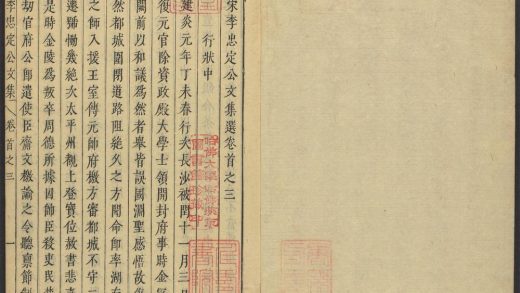 宋李忠定公文集選卷首之三
行狀中
哈佛大學漢和
圖書館珍藏印
建炎元年丁未春行次長沙被閏十一月三
復元官除資政殿大學士領開封府事時金
闕前以和議爲然者舉皆誤國淵聖感悟故
然都城圍閉道路阻絶久之方聞命即率湖
之師入援王室傳元帥府檄方審都城不守
遂號慟幾絶次太平州覩上登寶位赦書悲
是時金陵爲叛卒周德所據囚帥臣殺吏民
劫官府公即遣使臣齎文檄諭之令聽禀節制
李忠定公文集 卷首之三 一